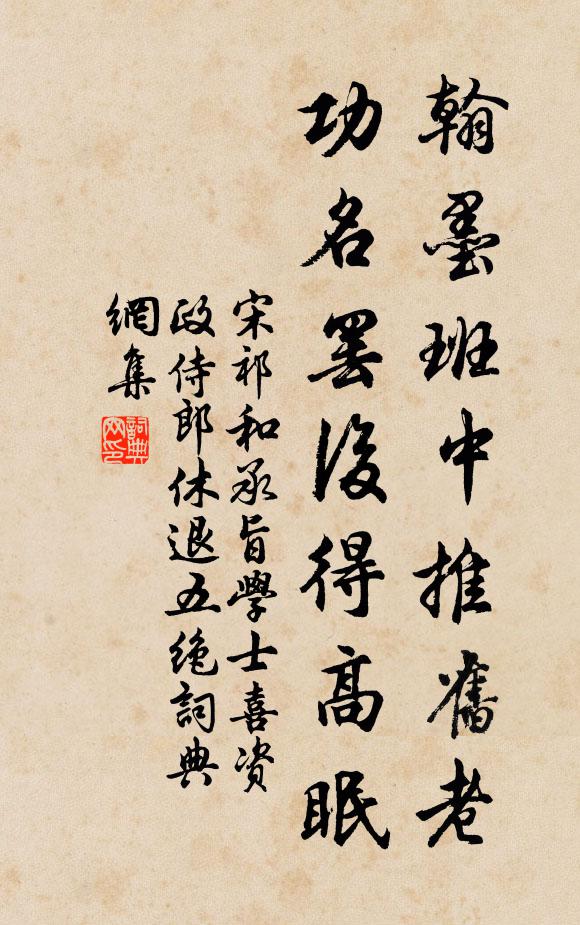 翰墨班中推舊老
功名罢後得高眠
宋祁和承旨學士喜资
政侍郎休退五绝詞典
網集
詞典
网印